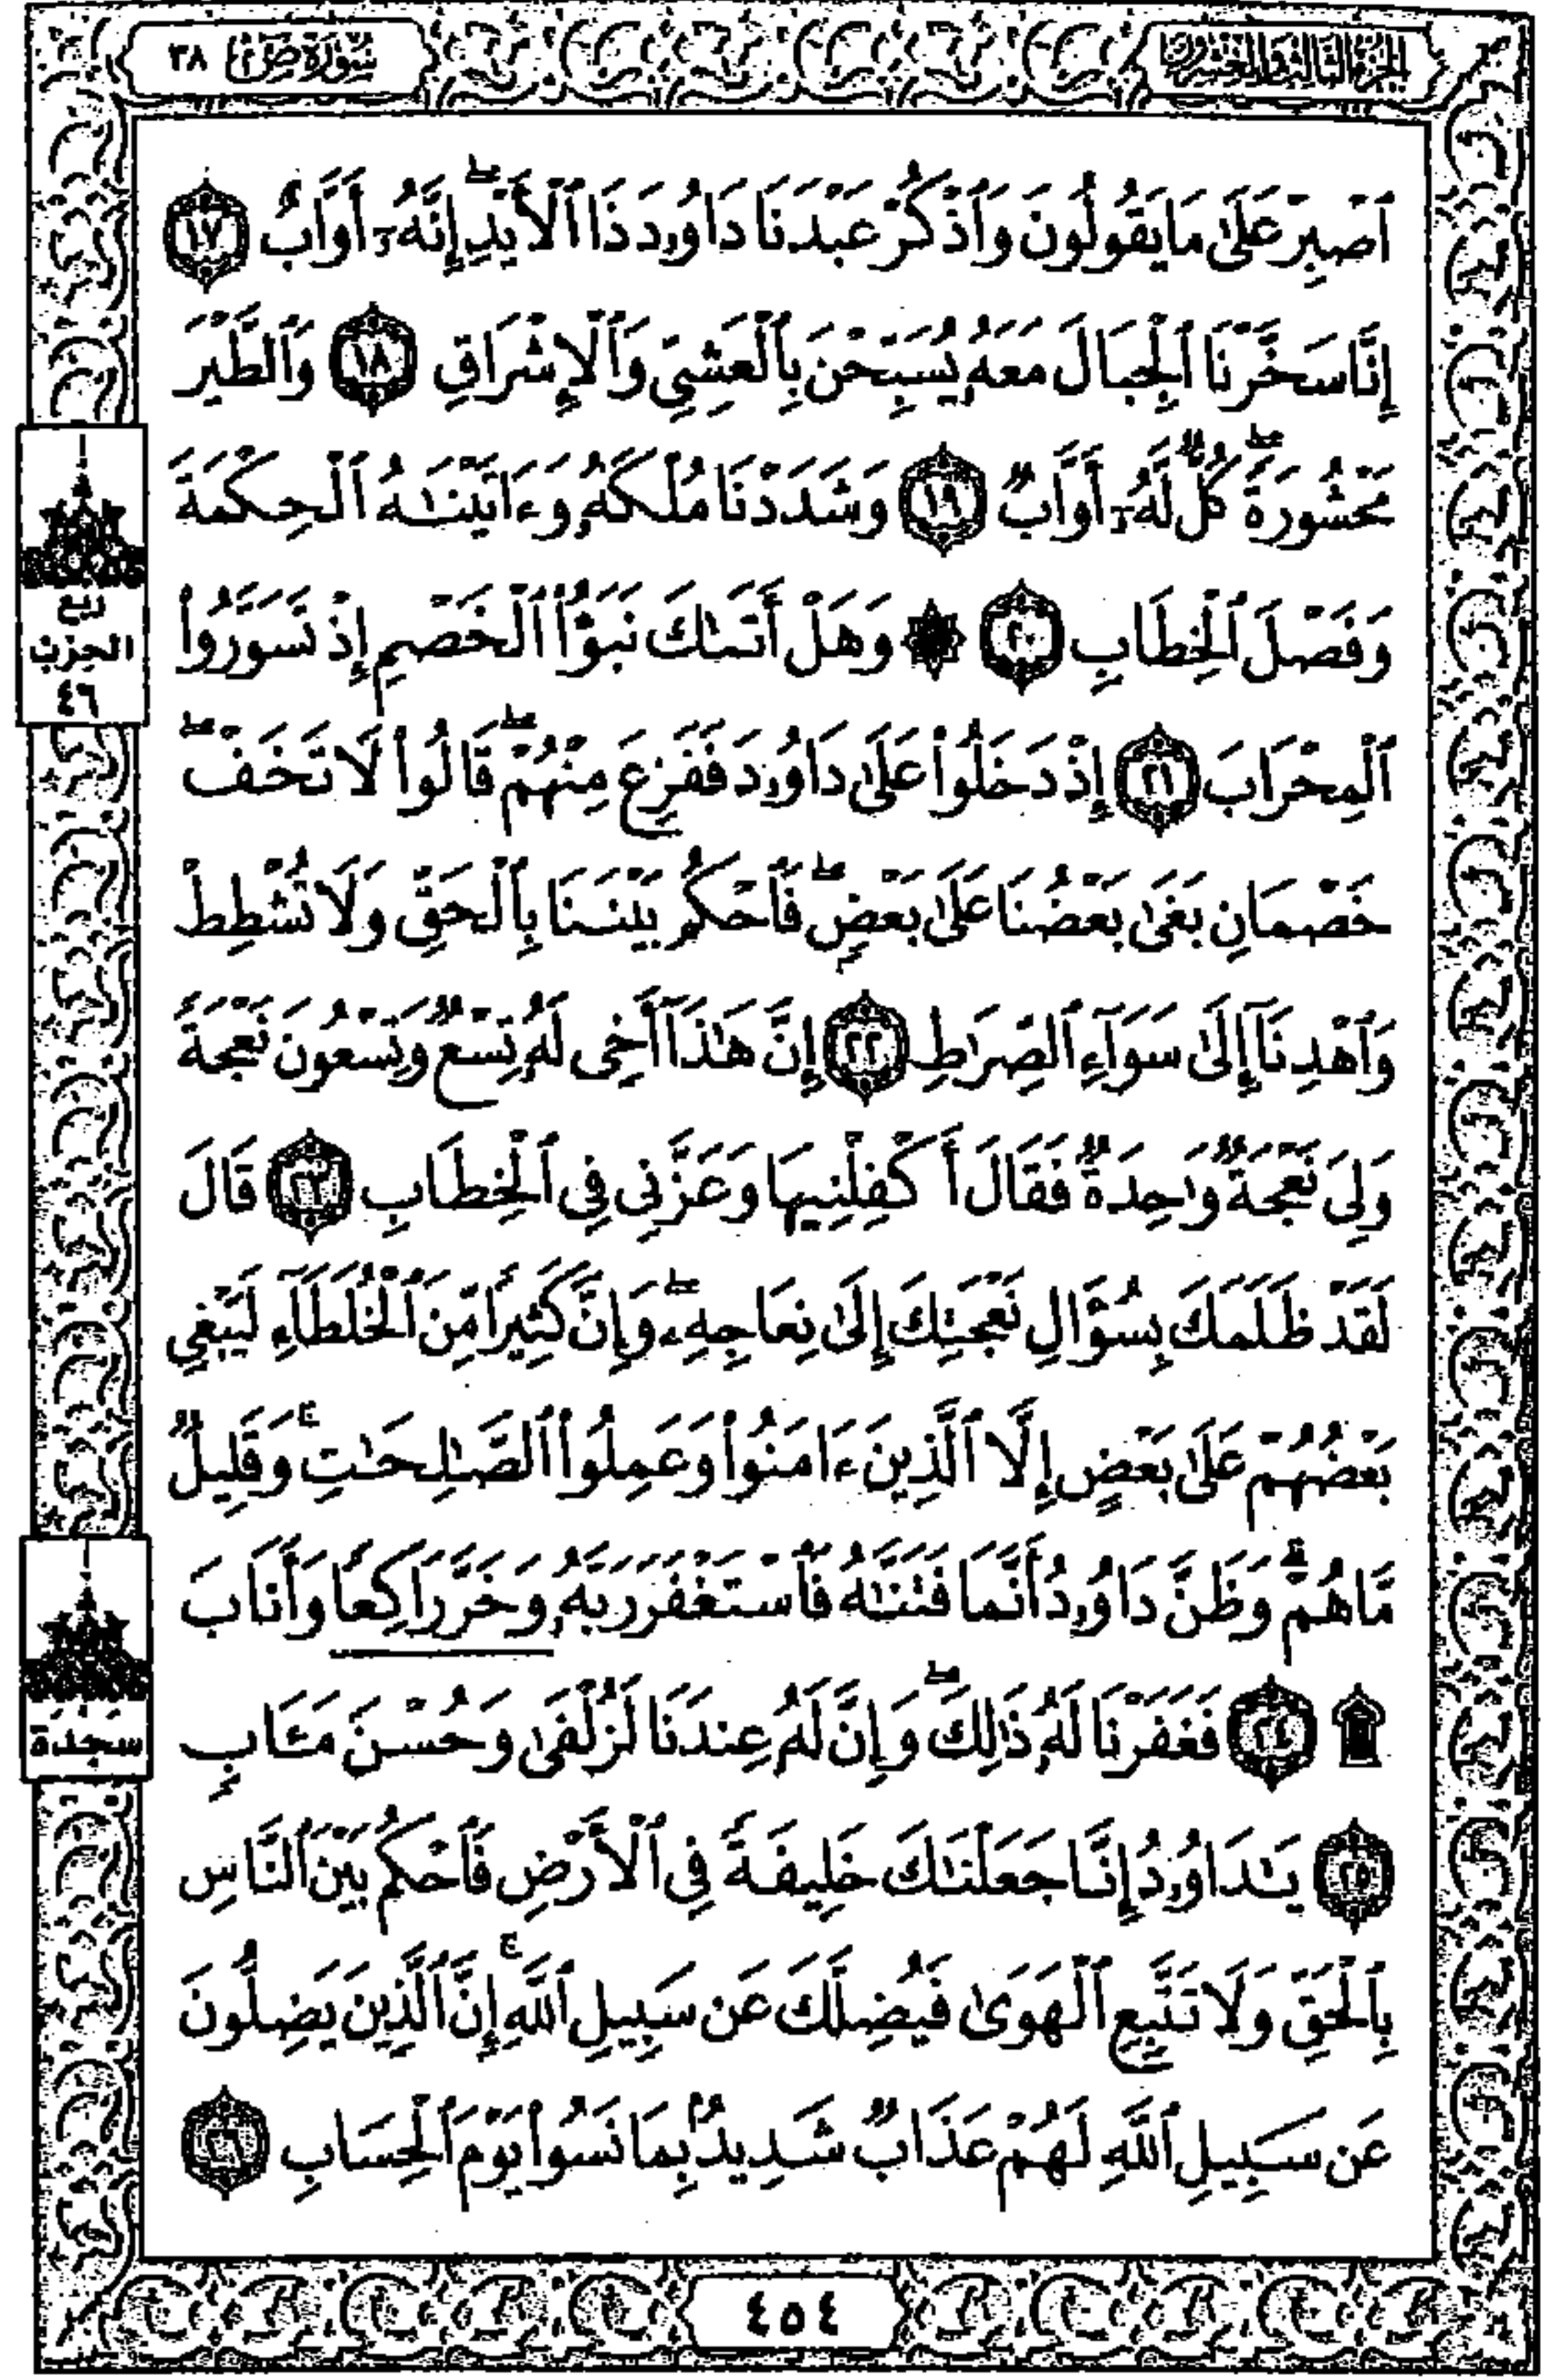 الجزء الثالث والعشرون
سورة ص ٣٨
ٱصْبِرْ عَلَىٰ مَا يَقُولُونَ وَٱذْكُرْ عَبْدَنَا دَاوُۥدَ ذَا ٱلْأَيْدِ ۖ إِنَّهُۥٓ أَوَّابٌ ١٧
إِنَّا سَخَّرْنَا ٱلْجِبَالَ مَعَهُۥ يُسَبِّحْنَ بِٱلْعَشِىِّ وَٱلْإِشْرَاقِ ١٨ وَٱلطَّيْرَ
مَحْشُورَةً ۖ كُلٌّ لَّهُۥٓ أَوَّابٌ ١٩ وَشَدَدْنَا مُلْكَهُۥ وَءَاتَيْنَـٰهُ ٱلْحِكْمَةَ
وَفَصْلَ ٱلْخِطَابِ ٢٠ ۞ وَهَلْ أَتَىٰكَ نَبَؤُا۟ ٱلْخَصْمِ إِذْ تَسَوَّرُوا۟
ٱلْمِحْرَابَ ٢١ إِذْ دَخَلُوا۟ عَلَىٰ دَاوُۥدَ فَفَزِعَ مِنْهُمْ ۖ قَالُوا۟ لَا تَخَفْ ۖ
خَصْمَانِ بَغَىٰ بَعْضُنَا عَلَىٰ بَعْضٍ ۖ فَٱحْكُم بَيْنَنَا بِٱلْحَقِّ وَلَا تُشْطِطْ
وَٱهْدِنَآ إِلَىٰ سَوَآءِ ٱلصِّرَٰطِ ٢٢ إِنَّ هَـٰذَآ أَخِى لَهُۥ تِسْعٌ وَتِسْعُونَ نَعْجَةً
وَلِىَ نَعْجَةٌ وَٰحِدَةٌ فَقَالَ أَكْفِلْنِيهَا وَعَزَّنِى فِى ٱلْخِطَابِ ٢٣ قَالَ
لَقَدْ ظَلَمَكَ بِسُؤَالِ نَعْجَتِكَ إِلَىٰ نِعَاجِهِۦ ۖ وَإِنَّ كَثِيرًا مِّنَ ٱلْخُلَطَآءِ لَيَبْغِى
بَعْضُهُمْ عَلَىٰ بَعْضٍ إِلَّا ٱلَّذِينَ ءَامَنُوا۟ وَعَمِلُوا۟ ٱلصَّـٰلِحَـٰتِ ۚ وَقَلِيلٌ
مَّا هُمْ ۗ وَظَنَّ دَاوُۥدُ أَنَّمَا فَتَنَّـٰهُ فَٱسْتَغْفَرَ رَبَّهُۥ وَخَرَّ رَاكِعًا وَأَنَابَ
۩ ٢٤ فَغَفَرْنَا لَهُۥ ذَٰلِكَ ۖ وَإِنَّ لَهُۥ عِندَنَا لَزُلْفَىٰ وَحُسْنَ مَـَٔابٍ
٢٥ يَـٰدَاوُۥدُ إِنَّا جَعَلْنَـٰكَ خَلِيفَةً فِى ٱلْأَرْضِ فَٱحْكُم بَيْنَ ٱلنَّاسِ
بِٱلْحَقِّ وَلَا تَتَّبِعِ ٱلْهَوَىٰ فَيُضِلَّكَ عَن سَبِيلِ ٱللَّهِ ۚ إِنَّ ٱلَّذِينَ يَضِلُّونَ
عَن سَبِيلِ ٱللَّهِ لَهُمْ عَذَابٌ شَدِيدٌۢ بِمَا نَسُوا۟ يَوْمَ ٱلْحِسَابِ ٢٦
ربع
الحزب
٤٦
سَجدَة
٤٥٤